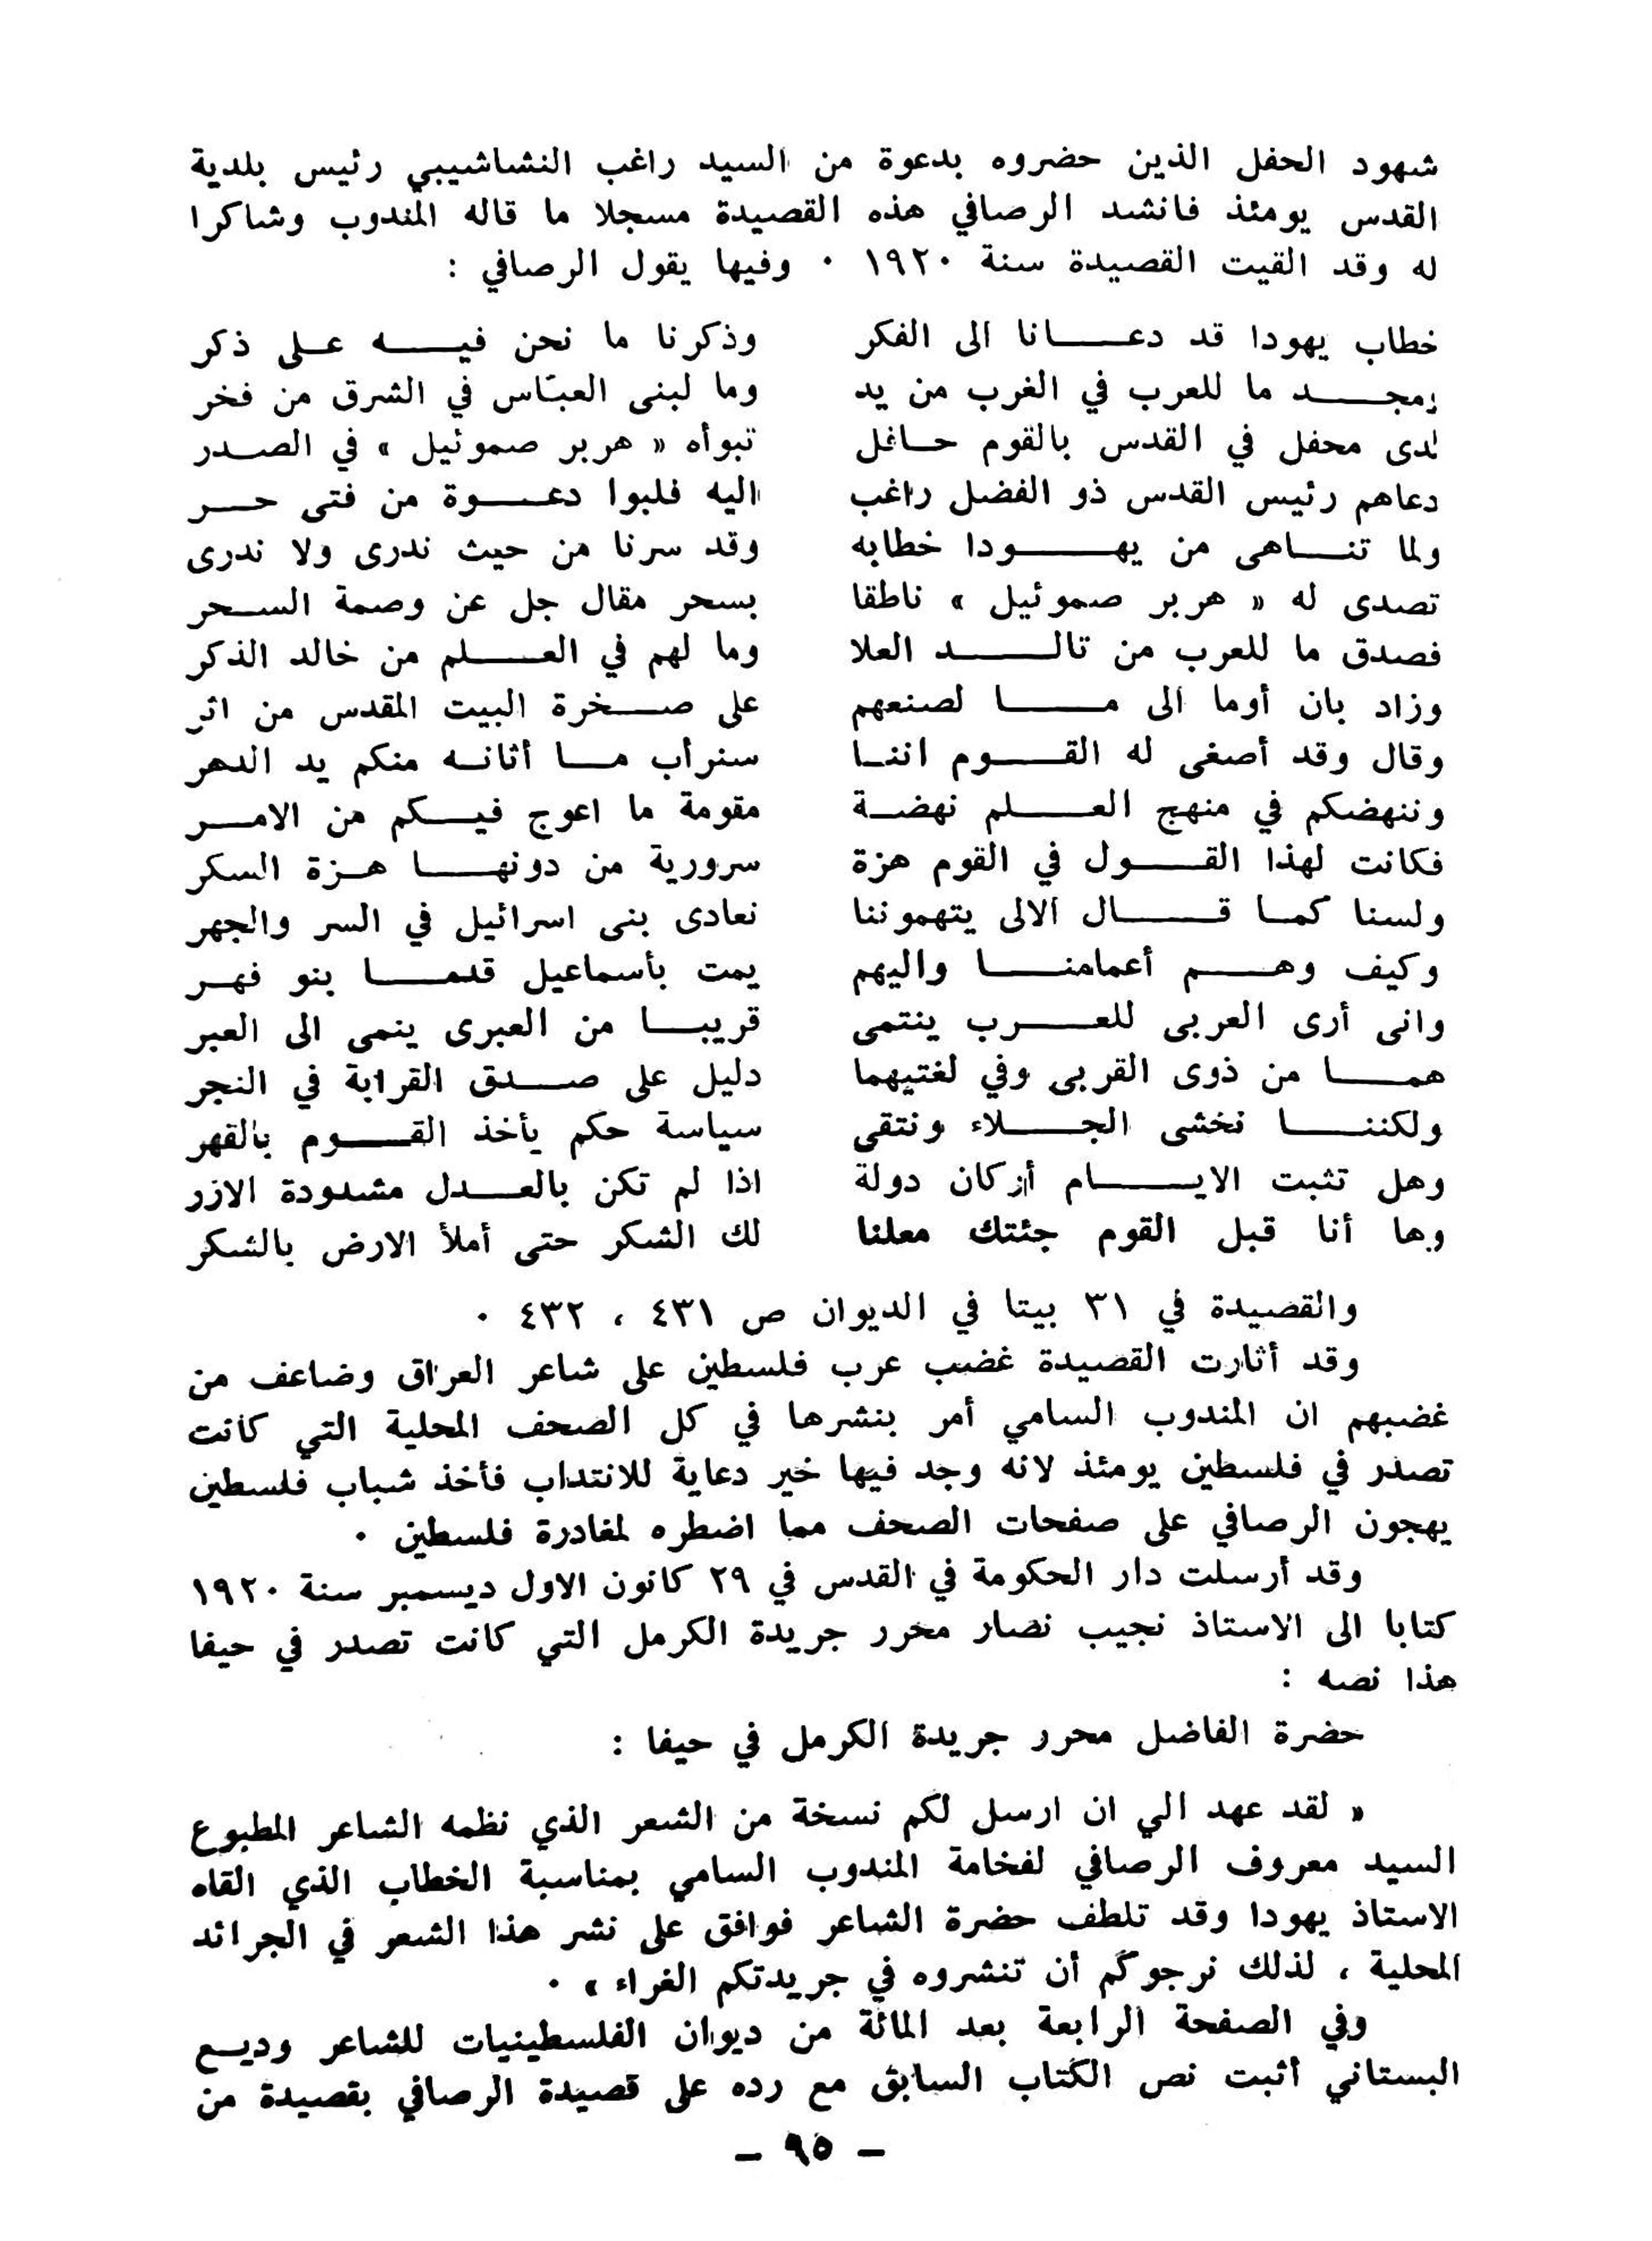 شهود الحفل الذين حضروه بدعوة من السيد راغب النشاشيبي رئيس بلدية
القدس يومئذ فانشد الرصافي هذه القصيدة مسجلا ما قاله المندوب وشاكرا
له وقد القيت القصيدة سنة ١٩٢٠ . وفيها يقول الرصافي :
خطاب يهودا قد دعـــانا الى الفكر وذكرنا ما نحن فيـــه عـلى ذكر
ومجـــد ما للعرب في الغرب من يد وما لبنى العبّاس في الشرق من فخر
لدى محفل في القدس بالقوم حـافل تبوأه « هربر صموئيل » في الصـدر
دعاهم رئيس القدس ذو الفضل راغب اليه فلبوا دعـــوة من فتى حـــر
ولما تنــاهى من يهـــودا خطابه وقد سرنا من حيث ندرى ولا ندرى
تصدى له « هربر صموئيل » ناطقا بسحر مقال جل عن وصمة السـحر
فصدق ما للعرب من تالـــد العلا وما لهم في العـــلم من خالد الذكر
وزاد بان أوما الى مـــا لصنعهم على صـخرة البيت المقدس من اثر
وقال وقد أصغى له القـــوم اننـا سنرأب مـا أثانـه منكم يد الدهر
وننهضكم في منهج العـــلم نهضـة مقومة ما اعوج فيـكم من الامـــر
فكانت لهذا القـــول في القوم هزة سرورية من دونهـــا هـزة السكر
ولسنا كمـا قـــال الالى يتهموننا نعادى بنى اسرائيل في السر والجهر
وكيف وهـــم أعمامنـــا واليهم يمت بأسماعيل قدمـــا بنو فهـر
وانى أرى العربى للعـــرب ينتمى قريبـــا من العبرى ينمى الى العبر
همـــا من ذوى القربى وفي لغتيهما دليل على صـــدق القرابة في النجر
ولكننـــا نخشى الجـــلاء ونتقى سياسة حكم يأخذ القـــوم بالقهر
وهل تثبت الايـــام أركان دولة اذا لم تكن بالعـــدل مشدودة الازر
وها أنا قبل القوم جئتك معلنا لك الشكر حتى أملأ الارض بالشكر
والقصيدة في ٣١ بيتا في الديوان ص ٤٣١ ، ٤٣٢ .
وقد أثارت القصيدة غضب عرب فلسطين على شاعر العراق وضاعف من
غضبهم ان المندوب السامي أمر بنشرها في كل الصحف المحلية التي كانت
تصدر في فلسطين يومئذ لانه وجد فيها خير دعاية للانتداب فأخذ شباب فلسطين
يهجون الرصافي على صفحات الصحف مما اضطره لمغادرة فلسطين .
وقد أرسلت دار الحكومة في القدس في ٢٩ كانون الاول ديسمبر سنة ١٩٢٠
كتابا الى الاستاذ نجيب نصار محرر جريدة الكرمل التي كانت تصدر في حيفا
هذا نصه :
حضرة الفاضل محرر جريدة الكرمل في حيفا :
« لقد عهد الي ان ارسل لكم نسخة من الشعر الذي نظمه الشاعر المطبوع
السيد معروف الرصافي لفخامة المندوب السامي بمناسبة الخطاب الذي القاه
الاستاذ يهودا وقد تلطف حضرة الشاعر فوافق على نشر هذا الشعر في الجرائد
المحلية ، لذلك نرجوكم أن تنشروه في جريدتكم الغراء » .
وفي الصفحة الرابعة بعد المائة من ديوان الفلسطينيات للشاعر وديـع
البستاني أثبت نص الكتاب السابق مع رده على قصيدة الرصافي بقصيدة من
- ٩٥ -